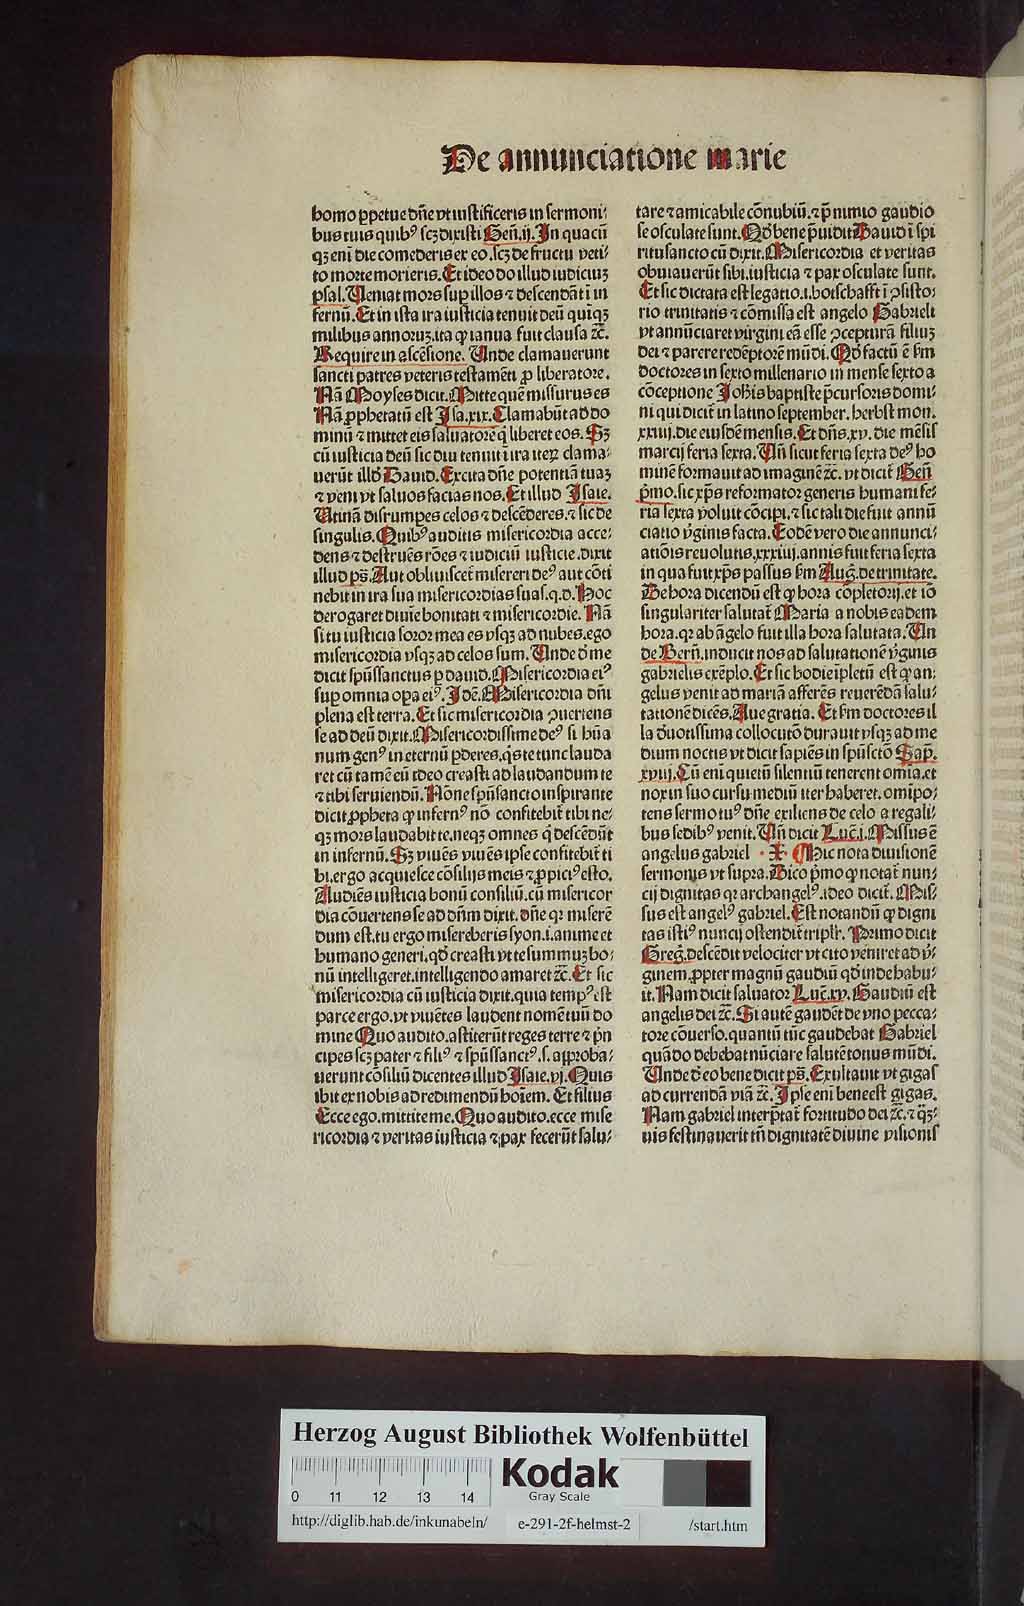 De annunciatione marie
homo ꝑpetue dn̄e vt iustificeris in sermoni⸗
bus tuis quibꝰ scꝫ dixisti Gen̄.ij. In quacū
qꝫ eni die comederis ex eo .scꝫ de fructu veti⸗
to morte morieris. Et ideo do illud iudiciuꝫ
psal. Veniat mors suꝑ illos ⁊ descendāt ī in
fernū. Et in ista ira iusticia tenuit deū quīqꝫ
milibus annoꝝ.ita ꝙ ianua fuit clausa ⁊c̄.
Require in ascēsione. Unde clamauerunt
sancti patres veteris testamēti ꝓ liberatore.
Nā Moyses dicit. Mitte quē missurus es
Nā ꝓphetatū est Isa.xix. Clamabūt ad do
minū ⁊ mittet eis saluatorē q̇ liberet eos. Sꝫ
cū iusticia deū sic diu tenuit ī ira iteꝝ clama⸗
uerūt illđ Dauid. Excita dn̄e potentiā tuaꝫ
⁊ veni vt saluos facias nos. Et illud Isaie.
Utinā disrumpes celos ⁊ descēderes.⁊ sic de
singulis. Quibꝰ auditis misericordia acce⸗
dens ⁊ destruēs rōes ⁊ iudiciū iusticie.dixit
illud ps̄. Aut obliuiscet̄ misereri deꝰ aut cōti
nebit in ira sua misericordias suas.q.d. Hoc
derogaret diuīe bonitati ⁊ misericordie. Nā
si tu iusticia soror mea es vsqꝫ ad nubes.ego
misericordia vsqꝫ ad celos sum. Unde đ me
dicit spūssanctus ꝑ dauid. Misericordia eiꝰ
suꝑ omnia oꝑa eiꝰ. Idē. Misericordia dn̄i
plena est terra. Et sic misericordia ꝯuertens
se ad deū dixit. Misericordissime deꝰ si hūa
num genꝰ in eternū ꝑderes.q̇s te tunc lauda
ret cū tamē eū ideo creasti ad laudandum te
⁊ tibi seruiendū. Nōne spūsancto inspirante
dicit ꝓpheta ꝙ infernꝰ nō confitebit̄ tibi ne⸗
qꝫ mors laudabit te.neqꝫ omnes q̇ descēdūt
in infernū. Sꝫ viuēs viuēs ipse confitebit̄ ti
bi.ergo acquiesce cōsilijs meis ⁊ ꝓpiciꝰ esto.
Audiēs iusticia bonū consiliū.cū misericor
dia cōuertens se ad dn̄m dixit. dn̄e qꝛ miserē
dum est.tu ergo misereberis syon.i.anime et
humano generi.qđ creasti vt te summuꝫ bo⸗
nū intelligeret.intelligendo amaret ⁊c̄. Et sic
misericordia cū iusticia dixit.quia tempꝰ est
parce ergo.vt viuētes laudent nomē tuū do
mine Quo audito.astiterūt reges terre ⁊ pṙn
cipes scꝫ pater ⁊ filiꝰ ⁊ spūssanctꝰ.s.approba⸗
uerunt cōsiliū dicentes illud Isaie.vj. Quis
ibit ex nobis ad redimendū hoīem. Et filius
Ecce ego.mittite me. Quo audito.ecce mise
ricordia ⁊ veritas iusticia ⁊ pax fecerūt salu⸗
tare ⁊ amicabile cōnubiū.⁊ p̄ nimio gaudio
se osculate sunt. Qđ bene p̄uidit Dauid ī spi
ritusancto cū dixit. Misericordia et veritas
obuiauerūt sibi.iusticia ⁊ pax osculate sunt.
Et sic dictata est legatio.i.botschafft ī ꝯsisto⸗
rio trinitatis ⁊ cōmissa est angelo Gabrieli
vt annūciaret virgini eā esse ꝯcepturā filiuꝫ
dei ⁊ parere redēptorē mūdi. Qđ factū ē s̄m
doctores in sexto millenario in mense sexto a
cōceptione Johīs baptiste p̄cursoris domi⸗
ni qui dicit̄ in latino september. herbst mon.
xxiiij.die eiusdē mensis. Et dn̄s.xv. die mēsis
marcij feria sexta. Un̄ sicut feria sexta deꝰ ho
minē formauit ad imaginē ⁊c̄. vt dicit̄ Gen̄
pṙmo.sic xp̄s reformator generis humani fe⸗
ria sexta voluit cōcipi.⁊ sic tali die fuit annū
ciatio vġinis facta. Eodē vero die annunci⸗
atiōis reuolutis.xxxiiij.annis fuit feria sexta
in qua fuit xp̄s passus s̄m Auḡ.de trinitate.
De hora dicendū est ꝙ hora cōpletorij.et iō
singulariter salutat̄ Maria a nobis eadem
hora.qꝛ ab āgelo fuit illa hora salutata. Un
de Bern̄.inducit nos ad salutationē vġinis
gabrielis exēplo. Et sic hodie īpletū est ꝙ an⸗
gelus venit ad mariā afferēs reuerēdā salu⸗
tationē dicēs. Aue gratia. Et s̄m doctores il
la đuotissima collocutō durauit vsqꝫ ad me
dium noctis vt dicit sapiēs in spūsctō Sap̄.
xviij. Cū eni quietū silentiū tenerent omīa.et
nox in suo cursu mediū iter haberet. omīpo⸗
tens sermo tuꝰ dn̄e exiliens de celo a regali⸗
bus sedibꝰ venit. Un̄ dicit Luc̄.i. Missus ē
angelus gabriel · X · Hic nota diuisionē
sermonis vt supra. Dico pṙmo ꝙ notat̄ nun⸗
cij dignitas qꝛ archangelꝰ.ideo dicit̄. Mis⸗
sus est angelꝰ gabriel. Est notandū ꝙ digni
tas istiꝰ nuncij ostendit̄ triplr̄. Primo dicit
Greḡ.descēdit velociter vt cito veniret ad vṙ⸗
ginem.ꝓpter magnū gaudiū qđ inde habu⸗
it. Nam dicit saluator Luc̄.xv. Gaudiū est
angelis dei ⁊c̄. Si autē gaudēt de vno pecca⸗
tore cōuerso.quantū tūc gaudebat Gabriel
quādo debebat nūciare salutē totius mūdi.
Unde đ eo bene dicit ps̄. Exultauit vt gigas
ad currendā viā ⁊c̄. Ipse eni bene est gigas.
Nam gabriel interp̄tat̄ fortitudo dei ⁊c̄.⁊ q̄ꝫ⸗
uis festinauerit tn̄ dignitatē diuine visionis
Herzog August Bibliothek Wolfenbüttel
0 11 12 13 14
Kodak
Gray Scale
http://diglib.hab.de/inkunabeln/ e-291-2f-helmst-2 /start.htm